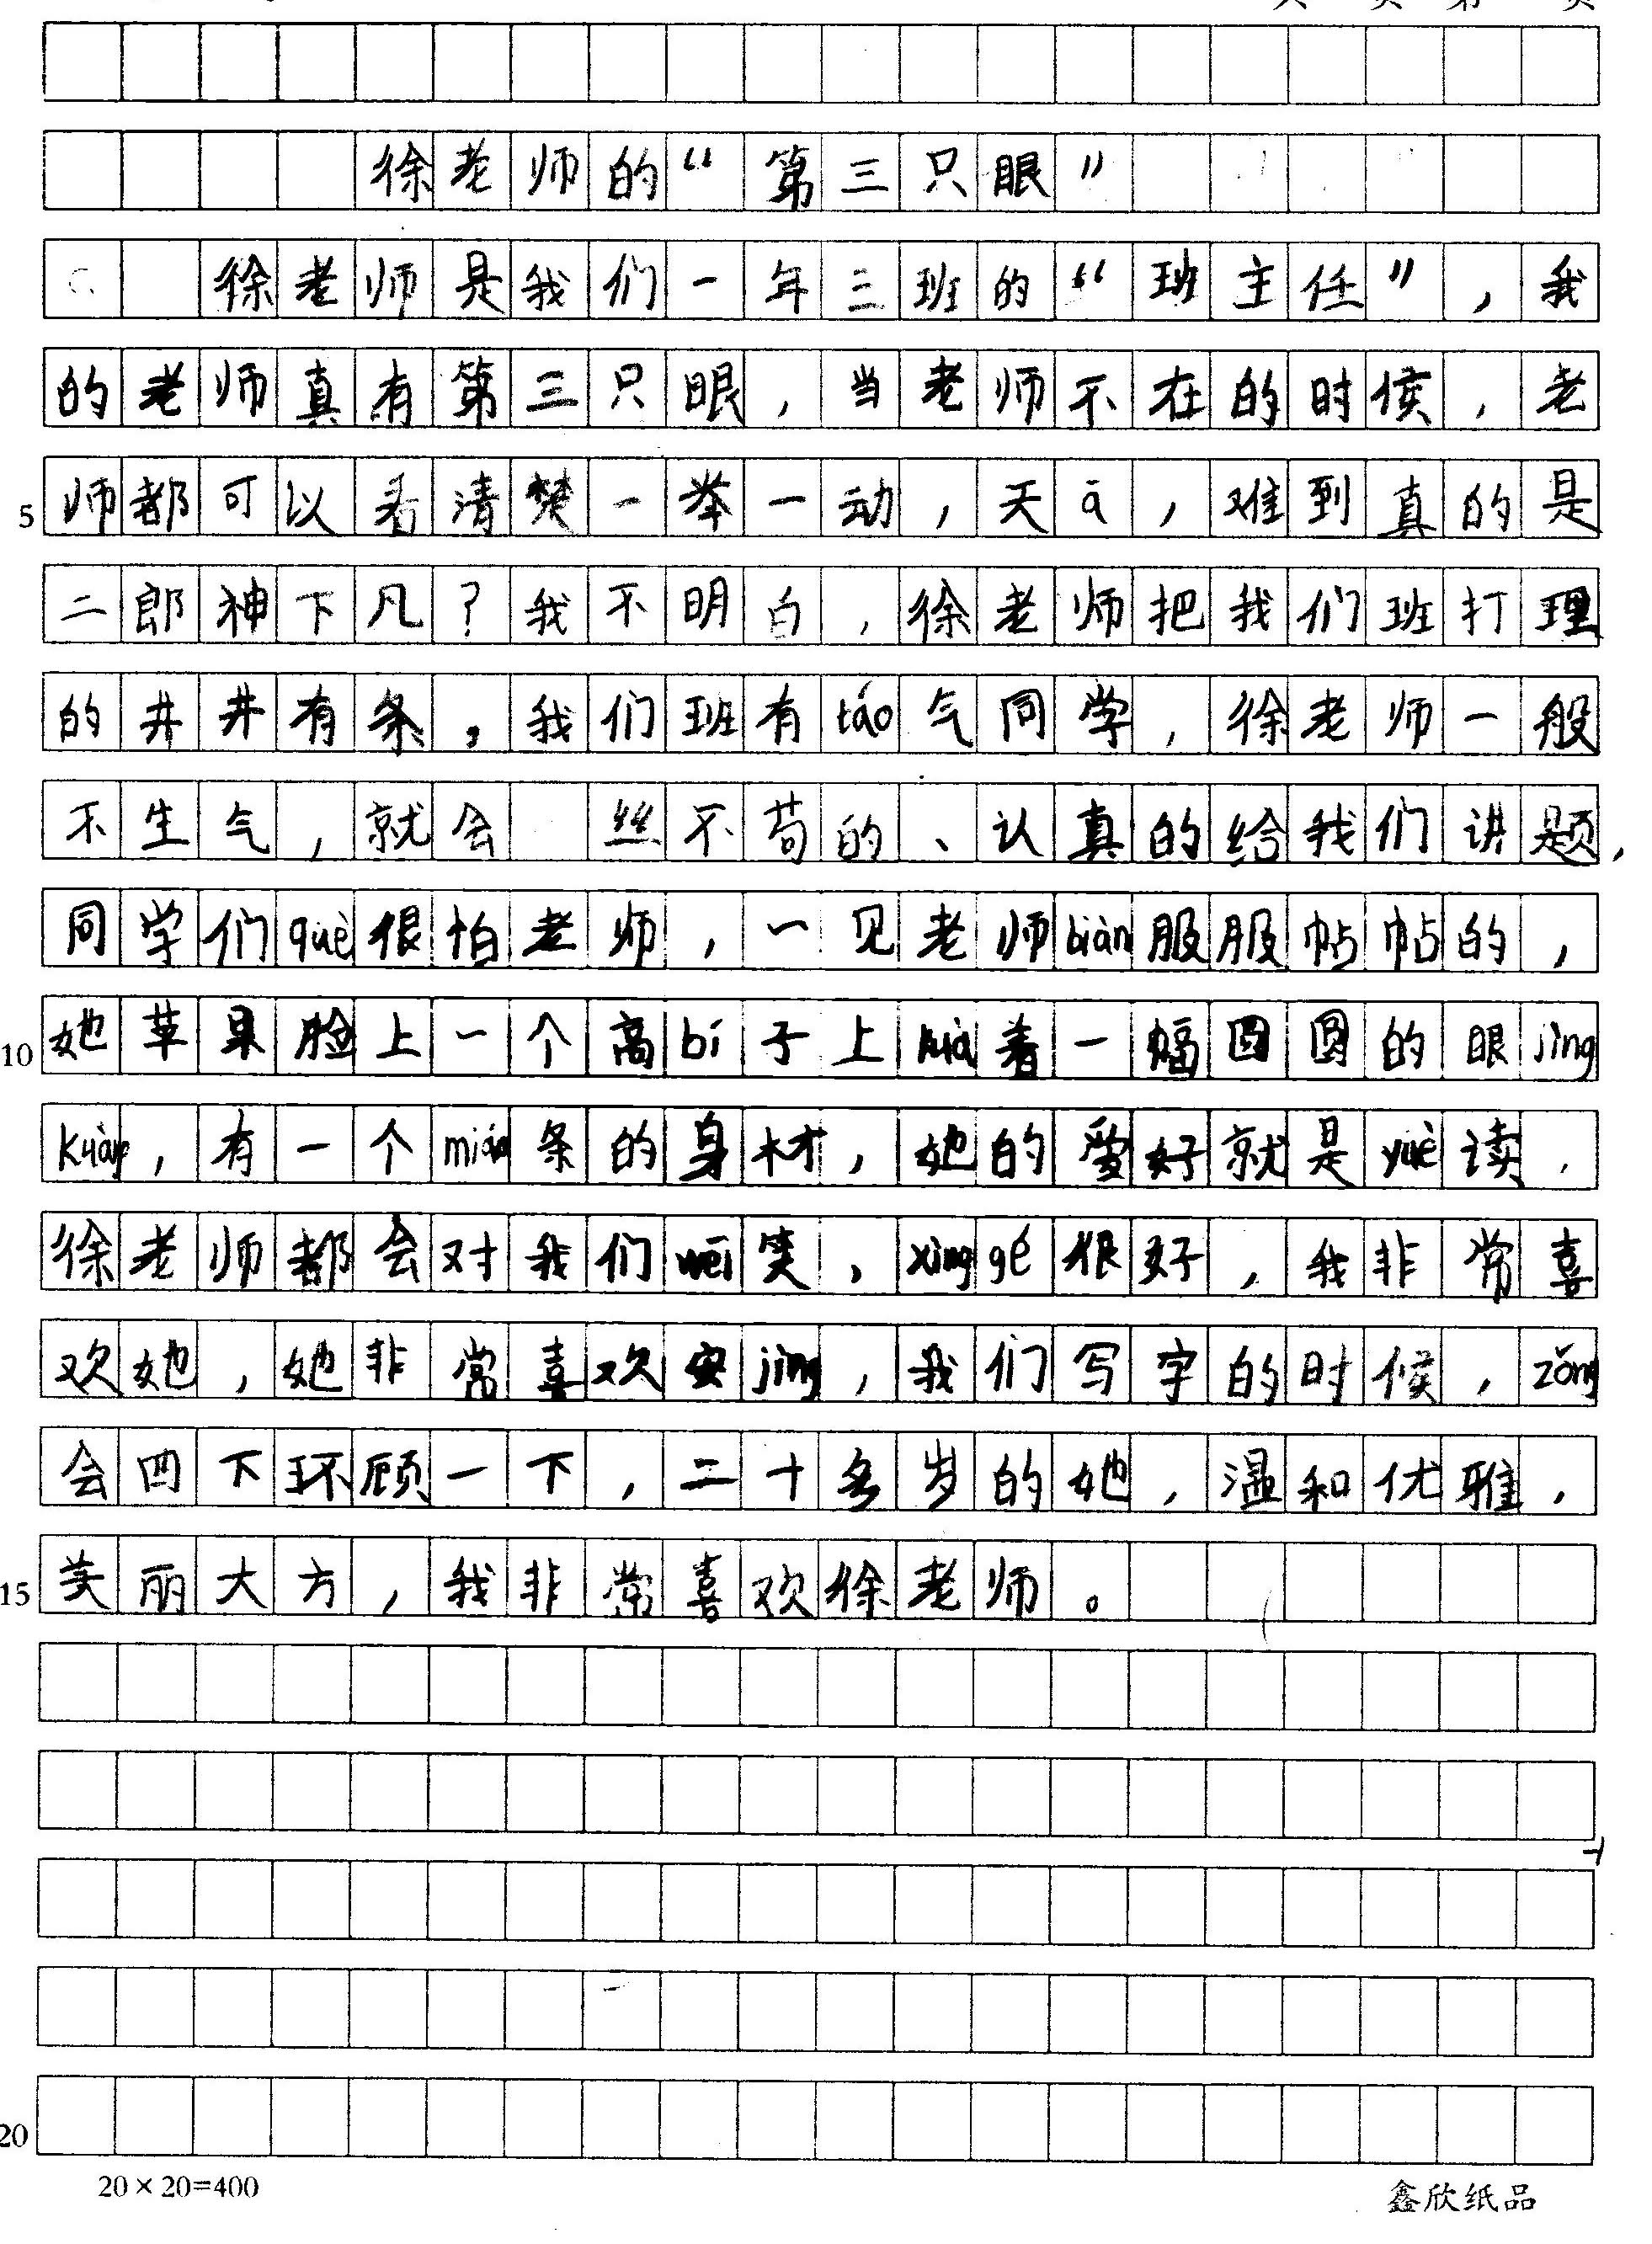 徐老师的“第三只眼”
徐老师是我们一年三班的“班主任”，我
的老师真有第三只眼，当老师不在的时候，老
5 师都可以看清楚一举一动，天ā，难到真的是
二郎神下凡？我不明白，徐老师把我们班打理
的井井有条，我们班有táo气同学，徐老师一般
不生气，就会 丝不苟的、认真的给我们讲题，
同学们què很怕老师，一见老师biàn服服帖帖的，
10 她苹果脸上一个高bí子上kuà着一幅圆圆的眼jìng
kuàng，有一个miáo条的身材，她的爱好就是yuè读，
徐老师都会对我们wēi笑，xìnggé很好，我非常喜
欢她，她非常喜欢安jìng，我们写字的时候，zǒng
会四下环顾一下，二十多岁的她，温和优雅，
15 美丽大方，我非常喜欢徐老师。
20
20×20=400 鑫欣纸品